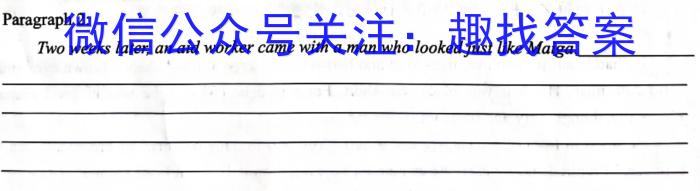 Paragraph 2:
微信公众号关注：趣找答案
Two weeks later, an aid worker came with a man who looked just like Malga.